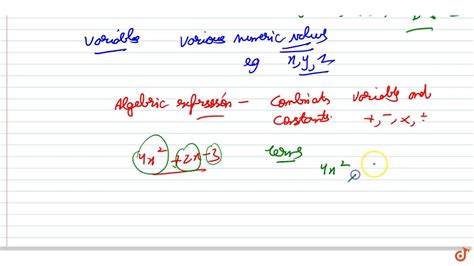 Variables Various numeric values
eg x, y, z
Algebric expression – Combinats variables and
constants. +, -, x, ÷
4x² + 2x - 3 terms
4x²,